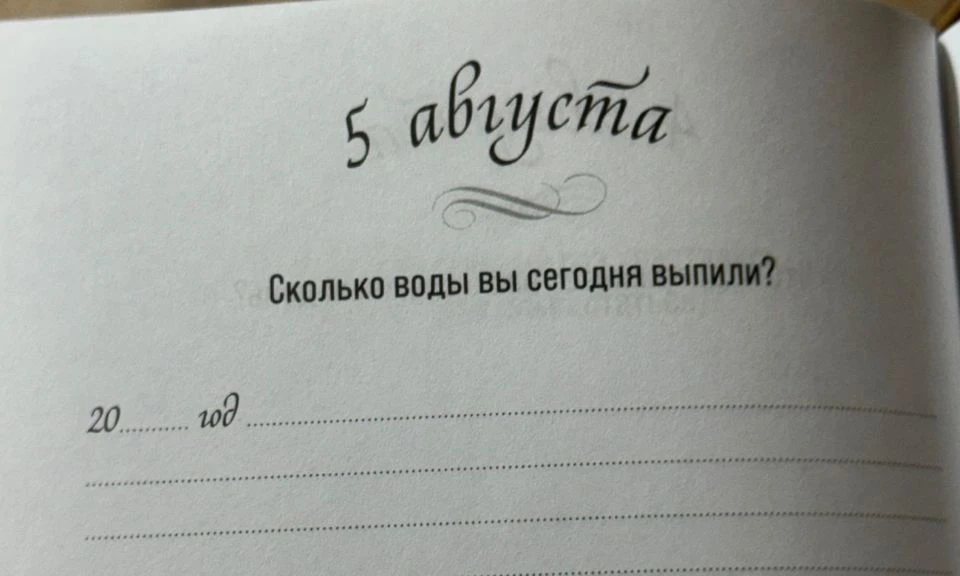 5 августа
Сколько воды вы сегодня выпили?
20.......... год